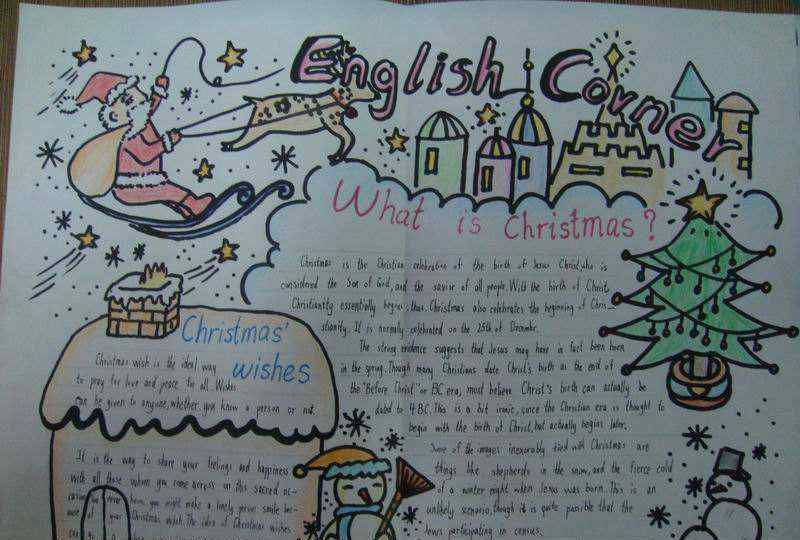 English Corner
What is Christmas?
Christmas is the Christian celebration of the birth of Jesus Christ, who is
considered the Son of God, and the savior of all people. With the birth of Christ
Christianity essentially begins, thus Christmas also celebrates the beginning of Chris-
tianity. It is normally celebrated on the 25th of December.
The strong evidence suggests that Jesus may have in fact been born
in the spring. Though many Christians date Christ's birth as the end of
the "Before Christ" or BC era, most believe Christ's birth can actually be
dated to 4 B.C. This is a bit ironic, since the Christian era is thought to
begin with the birth of Christ, but actually begins later.
Some of the images inexorably tied with Christmas are
things like shepherds in the snow, and the fierce cold
of a winter night when Jesus was born. This is an
unlikely scenario, though it is quite possible that the
Jews participating in census
Christmas' wishes
Christmas wish is the ideal way
to pray for love and peace for all. Wishes
can be given to anyone, whether you know a person or not.
It is the way to share your feelings and happiness
with all those whom you come across on this sacred oc-
them, you might make a lonely person smile bec-
of your Christmas wish. The idea of Christmas wishes